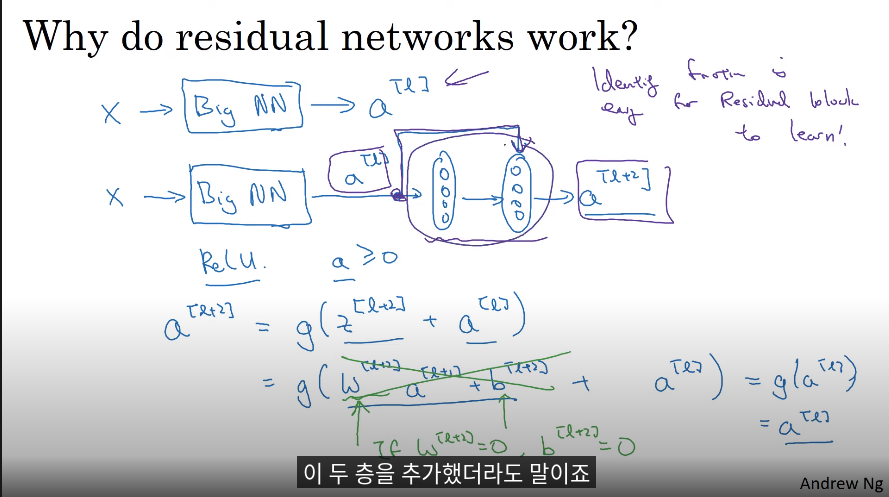 Why do residual networks work?
X → Big NN → a^[l]
Identity function is
easy for Residual block
to learn!
X → Big NN a^[l] → a^[l+2]
ReLU. a ≥ 0
a^[l+2] = g(z^[l+2] + a^[l])
= g(W^[l+2] a^[l+1] + b^[l+2] + a^[l]) = g(a^[l])
= a^[l]
If W^[l+2] = 0, b^[l+2] = 0
이 두 층을 추가했더라도 말이죠
Andrew Ng